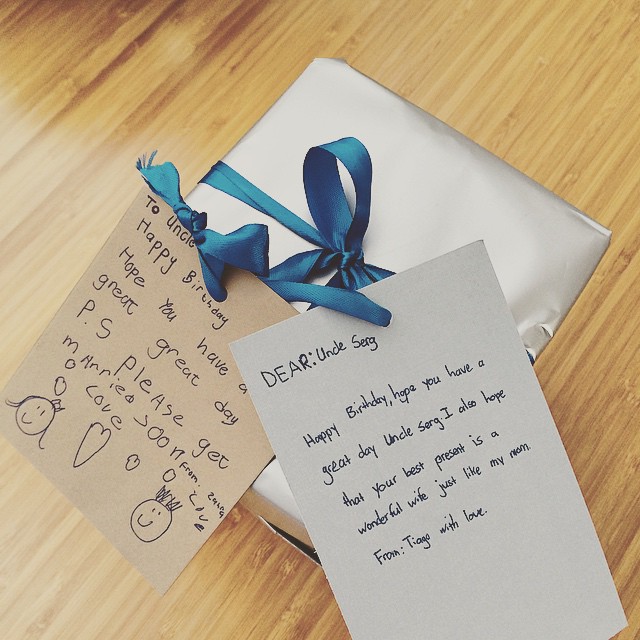 To Uncle
Happy Birthday
Hope You have a
great great day
P.S Please get
mArried soon
Love
From:
Love
DEAR: Uncle Serg
Happy Birthday, hope you have a
great day Uncle Serg. I also hope
that your best present is a
wonderful wife just like my mom.
From: Tiago with love.